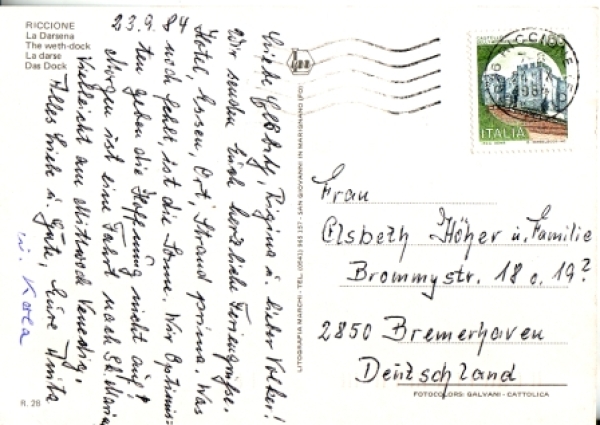 RICCIONE
La Darsena
The weth-dock
La darse
Das Dock
23.9.84
Liebe Elsbeth, Regina u. lieber Volker!
Wir senden Euch herzliche Feriengrüße.
Hotel, Essen, Ort, Strand prima. Was
noch fehlt, ist die Sonne. Wir Optimis-
ten geben die Hoffnung nicht auf!
Morgen ist eine Fahrt nach
Vielleicht am Mittwoch Venedig.
Alles Liebe u. Gute, Eure Anita
u. Karla
R. 28
LITOGRAFIA MARCHI - TEL. (0541) 966 157 - SAN GIOVANNI IN MARIGNANO (FO)
ITALIA
Frau
Elsbeth Höher u. Familie
Brommystr. 18 o. 19?
2850 Bremerhaven
Deutschland
FOTOCOLORS: GALVANI - CATTOLICA